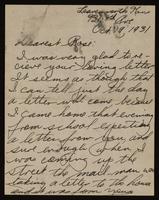 Leavenworth Kan
Oct. 9, 1931
Dearest Rose:
I was very glad to re-
ceive your loving letter
It seems as though that
I can tell just the day
a letter will come because
I came home that evening
from school expecting
a letter from you and
sure enough when I
was coming up the
street the mail man was
taking a letter to the house
and it was from you